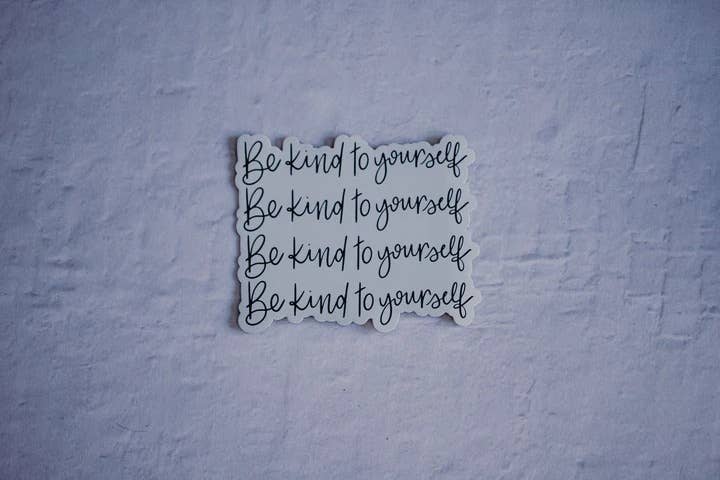 Be kind to yourself
Be kind to yourself
Be kind to yourself
Be kind to yourself